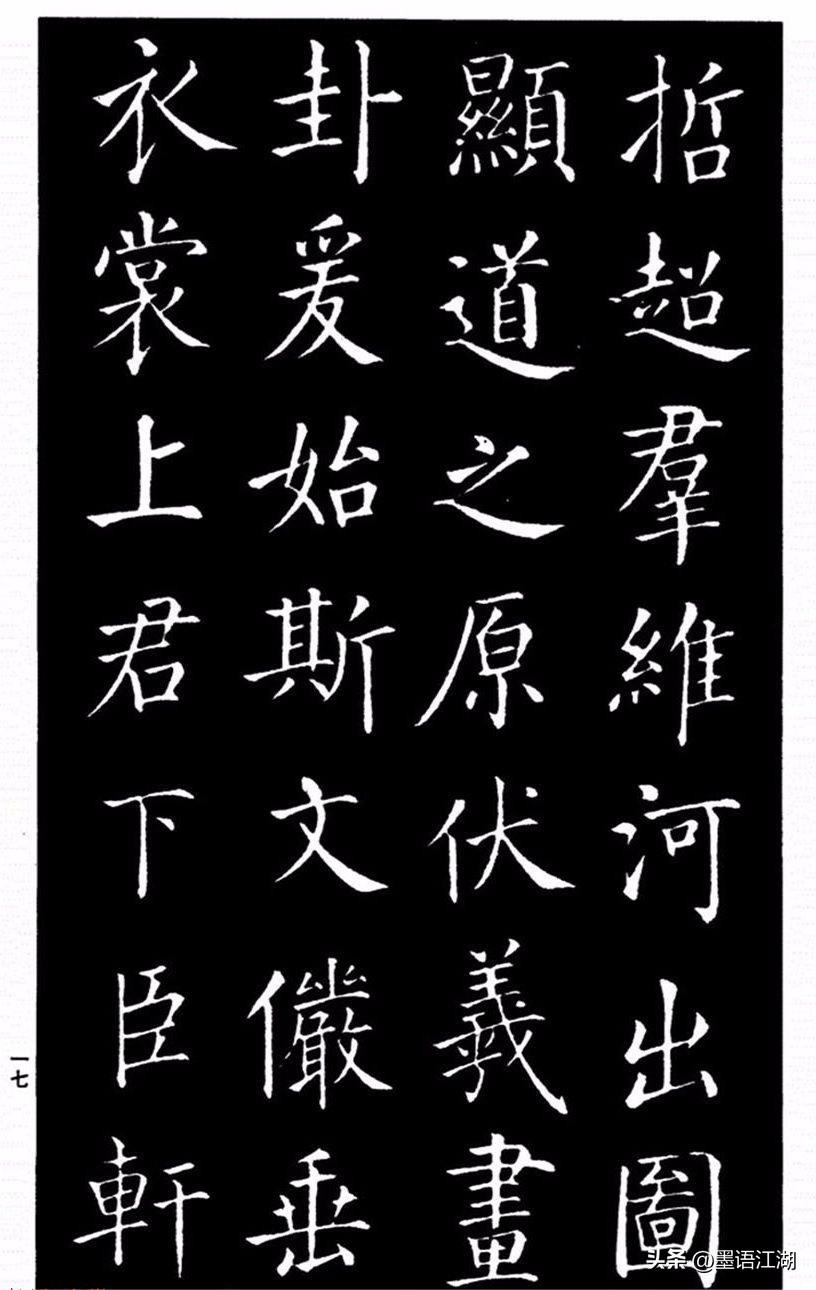 哲超羣維河出圖
顯道之原伏羲畫
卦爰始斯文儼垂
衣裳上君下臣軒
一七
头条 @墨语江湖